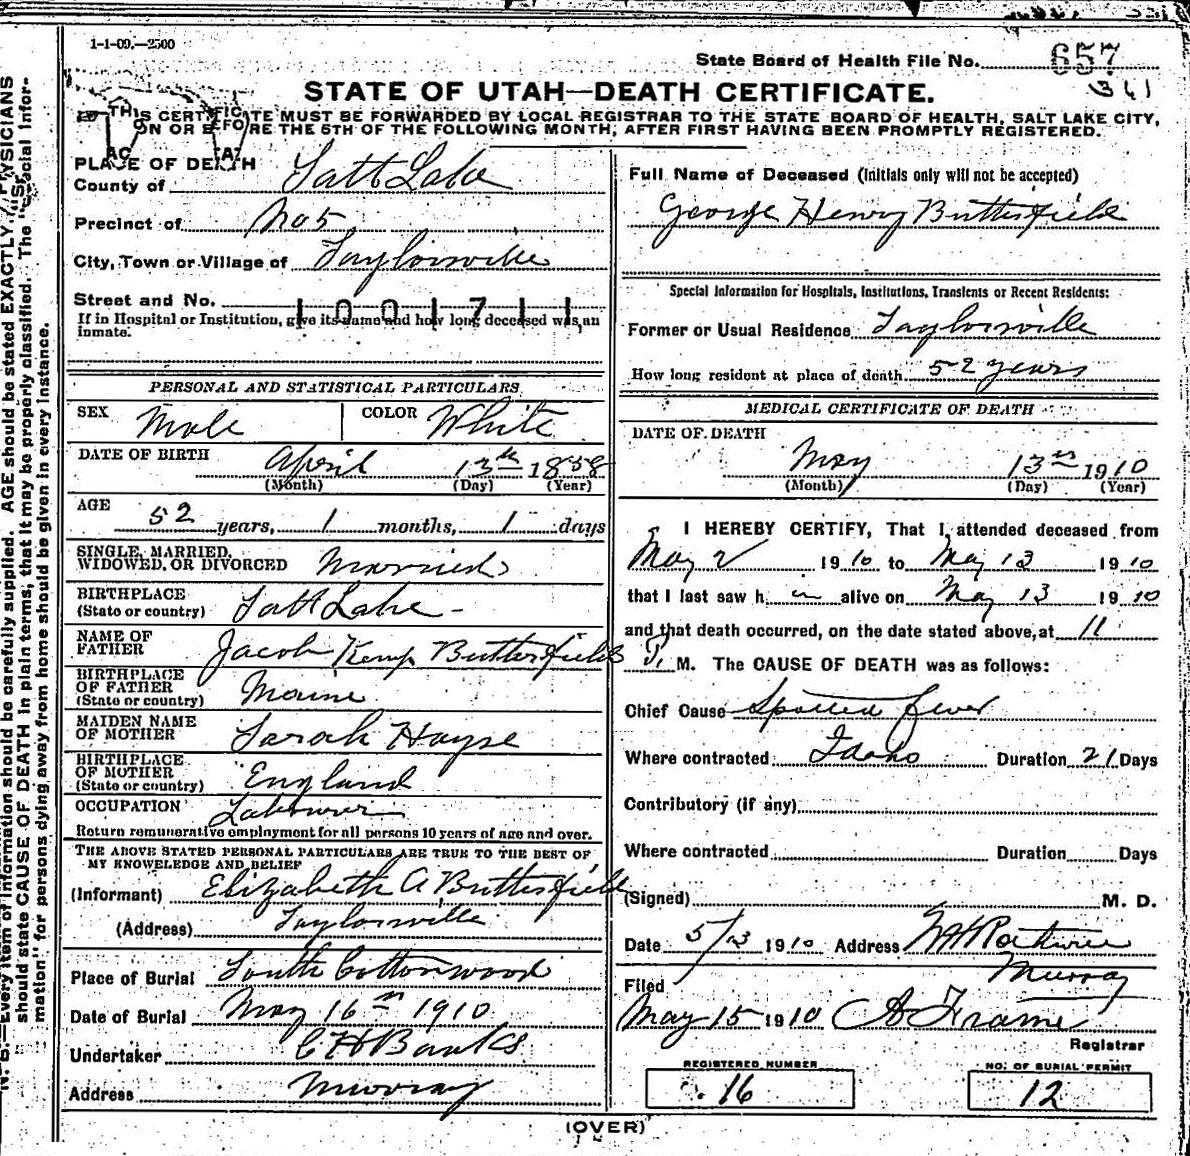 1-1-09.—2500
State Board of Health File No. 657
361
STATE OF UTAH—DEATH CERTIFICATE.
THIS CERTIFICATE MUST BE FORWARDED BY LOCAL REGISTRAR TO THE STATE BOARD OF HEALTH, SALT LAKE CITY,
ON OR BEFORE THE 5TH OF THE FOLLOWING MONTH, AFTER FIRST HAVING BEEN PROMPTLY REGISTERED.
PLACE OF DEATH
County of Salt Lake
Precinct of No 5
City, Town or Village of Taylorsville
Street and No.
1001711
If in Hospital or Institution, give its name and how long deceased was an
inmate.
PERSONAL AND STATISTICAL PARTICULARS
SEX Male COLOR White
DATE OF BIRTH April 13th 1858
(Month) (Day) (Year)
AGE 52 years, 1 months, 1 days
SINGLE, MARRIED,
WIDOWED, OR DIVORCED Married
BIRTHPLACE
(State or country) Salt Lake -
NAME OF
FATHER Jacob Kemp Butterfield
BIRTHPLACE
OF FATHER
(State or country) Maine
MAIDEN NAME
OF MOTHER Sarah Hayse
BIRTHPLACE
OF MOTHER
(State or country) England
OCCUPATION Labourer
Return remunerative employment for all persons 10 years of age and over.
THE ABOVE STATED PERSONAL PARTICULARS ARE TRUE TO THE BEST OF
MY KNOWELEDGE AND BELIEF
(Informant) Elizabeth A Butterfield
(Address) Taylorsville
Place of Burial South Cottonwood
Date of Burial May 16th 1910
Undertaker C H Banks
Address Murray
Full Name of Deceased (Initials only will not be accepted)
George Henry Butterfield
Special Information for Hospitals, Institutions, Transients or Recent Residents:
Former or Usual Residence Taylorsville
How long resident at place of death 52 years
MEDICAL CERTIFICATE OF DEATH
DATE OF DEATH
May 13th 1910
(Month) (Day) (Year)
I HEREBY CERTIFY, That I attended deceased from
May 2 1910 to May 13 1910
that I last saw h im alive on May 13 1910
and that death occurred, on the date stated above, at 11
P. M. The CAUSE OF DEATH was as follows:
Chief Cause Spotted fever
Where contracted Idaho Duration 21 Days
Contributory (if any)
Where contracted Duration Days
(Signed) M. D.
Date 5/13 1910 Address
Murray
Filed
May 15 1910 A Frame
Registrar
REGISTERED NUMBER
16
NO. OF BURIAL PERMIT
12
(OVER)
N. B.—Every item of information should be carefully supplied. AGE should be stated EXACTLY. PHYSICIANS
should state CAUSE OF DEATH in plain terms, that it may be properly classified. The "Special Infor-
mation" for persons dying away from home should be given in every instance.